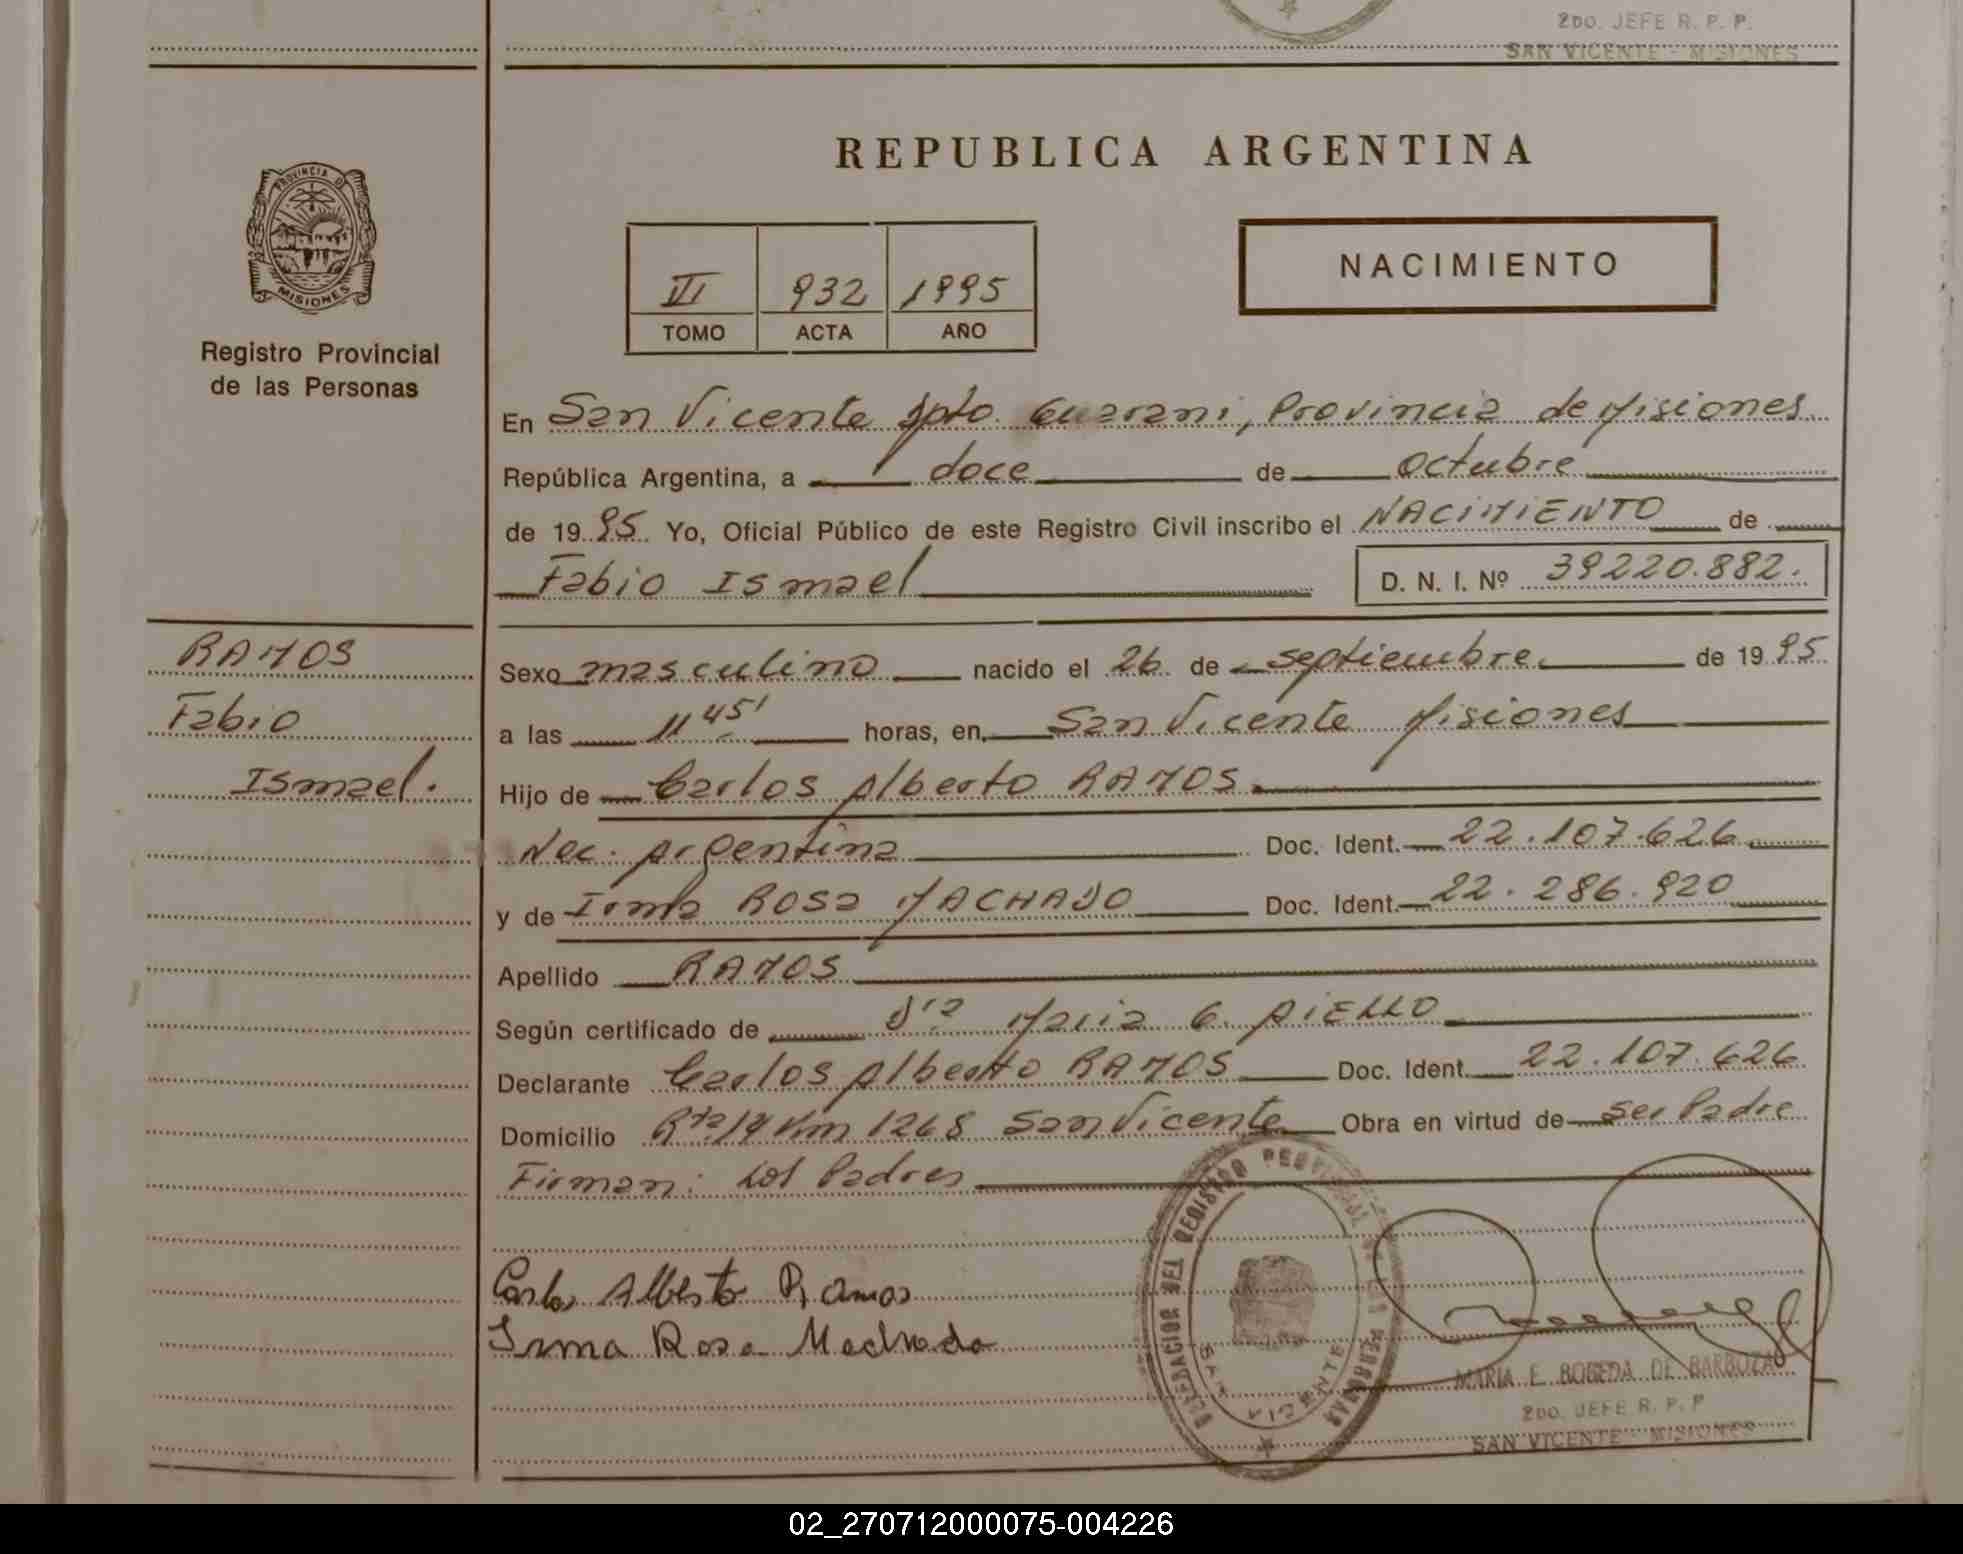 2DO. JEFE R. P. P.
SAN VICENTE - MISIONES
REPUBLICA ARGENTINA
PROVINCIA DE
MISIONES
Registro Provincial
de las Personas
VI 932 1995
TOMO ACTA AÑO
NACIMIENTO
En San Vicente Dpto. Guarani, Provincia de Misiones
República Argentina, a doce de octubre
de 1995 Yo, Oficial Público de este Registro Civil inscribo el NACIMIENTO de
Fabio Ismael
D. N. I. Nº 39220.882.
RAMOS
Fabio
Ismael.
Sexo masculino nacido el 26 de septiembre de 1995
a las 11 45' horas, en San Vicente Misiones
Hijo de Carlos Alberto RAMOS
Nac. Argentina Doc. Ident. 22.107.626
y de Irma Rosa MACHADO Doc. Ident. 22.286.920
Apellido RAMOS
Según certificado de Dra Maria G. AIELLO
Declarante Carlos Alberto RAMOS Doc. Ident. 22.107.626
Domicilio Rta 14 Km 1268 San Vicente Obra en virtud de ser Padre
Firman: Los Padres
Carlos Alberto Ramos
Irma Rosa Machado
DEL REGISTRO PROVINCIAL DE LAS PERSONAS
SAN VICENTE
MARIA E. BOBEDA DE BARBOZA
2DO. JEFE R. P. P
SAN VICENTE - MISIONES
02_270712000075-004226